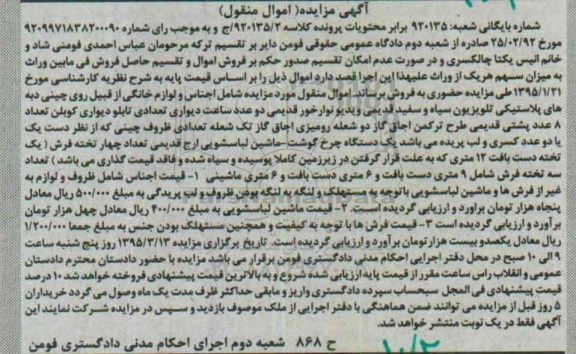 آگهی مزایده( اموال منقول)
شماره بایگانی شعبه: ۹۲۰۱۳۵ برابر محتویات پرونده کلاسه ۹۲۰۱۳۵/۲/ج و به موجب رای شماره ۹۲۰۹۹۷۱۸۳۸۲۰۰۰۹۰
مورخ ۲۵/۰۲/۹۲ صادره از شعبه دوم دادگاه عمومی حقوقی فومن دایر بر تقسیم ترکه مرحومان عباس احمدی فومنی شاد و
خانم الیس یکتا چالکسری و در صورت عدم امکان تقسیم صدور حکم بر فروش اموال و تقسیم حاصل فروش فی مابین وراث
به میزان سهم هریک از وراث علیهذا این اجرا قصد دارد اموال ذیل را بر اساس قیمت پایه به شرح نظریه کارشناسی مورخ
۱۳۹۵/۱/۲۱ طی مزایده حضوری به فروش برساند. اموال منقول مورد مزایده شامل اجناس و لوازم خانگی از قبیل روی چینی دبه
های پلاستیکی تلویزیون سیاه و سفید قدیمی ویدیو نوار خور قدیمی دو عدد ساعت دیواری تعدادی تابلو دیواری کوبلن تعداد
۸ عدد پشتی قدیمی طرح ترکمن اجاق گاز دو شعله رومیزی اجاق گاز تک شعله تعدادی ظروف چینی که از نظر دست یک
یا دو عدد کسری و لب پریده می باشد یک دستگاه چرخ گوشت-ماشین لباسشویی ارج قدیمی تعداد چهار تخته فرش ( یک
تخته دست بافت ۱۲ متری که به علت قرار گرفتن در زیرزمین کاملا پوسیده و سیاه شده و فاقد قیمت گذاری می باشد ) تعداد
سه تخته فرش شامل ۹ متری دست بافت و ۶ متری دست بافت و ۶ متری ماشینی ۱- قیمت اجناس شامل ظروف و لوازم به
غیر از فرش ها و ماشین لباسشویی با توجه به مستهلک و لنگه به لنگه بودن ظروف و لب پریدگی به مبلغ ۵۰۰/۰۰۰ ریال معادل
پنجاه هزار تومان براورد و ارزیابی گردیده است. ۲- قیمت ماشین لباسشویی به مبلغ ۴۰۰/۰۰۰ ریال معادل چهل هزار تومان
برآورد و ارزیابی گردیده است ۳- قیمت فرش ها با توجه به کیفیت و همچنین مستهلک بودن جنس به مبلغ جمعا ۱/۲۰۰/۰۰۰
ریال معادل یکصدو بیست هزار تومان برآورد و ارزیابی گردیده است. تاریخ برگزاری مزایده ۱۳۹۵/۳/۱۳ روز پنج شنبه ساعت
۹ الی ۱۰ صبح در محل دفتر اجرایی احکام مدنی دادگستری فومن برقرار می باشد مزایده با حضور دادستان محترم دادستان
عمومی و انقلاب راس ساعت مقرر از قیمت پایه ارزیابی شده شروع و به بالاترین قیمت پیشنهادی فروخته خواهد شد ۱۰ درصد
قیمت پیشنهادی فی المجل سبحساب سپرده دادگستری واریز و مابقی حداکثر ظرف مدت یک ماه وصول می گردد خریداران
۵ روز قبل از مزایده می توانند ضمن هماهنگی با دفتر اجرایی از ملک موصوف بازدید و سپس در مزایده شرکت نمایند این
آگهی فقط در یک نوبت منتشر خواهد شد.
ح ۸۶۸ شعبه دوم اجرای احکام مدنی دادگستری فومن
۱۰/۲